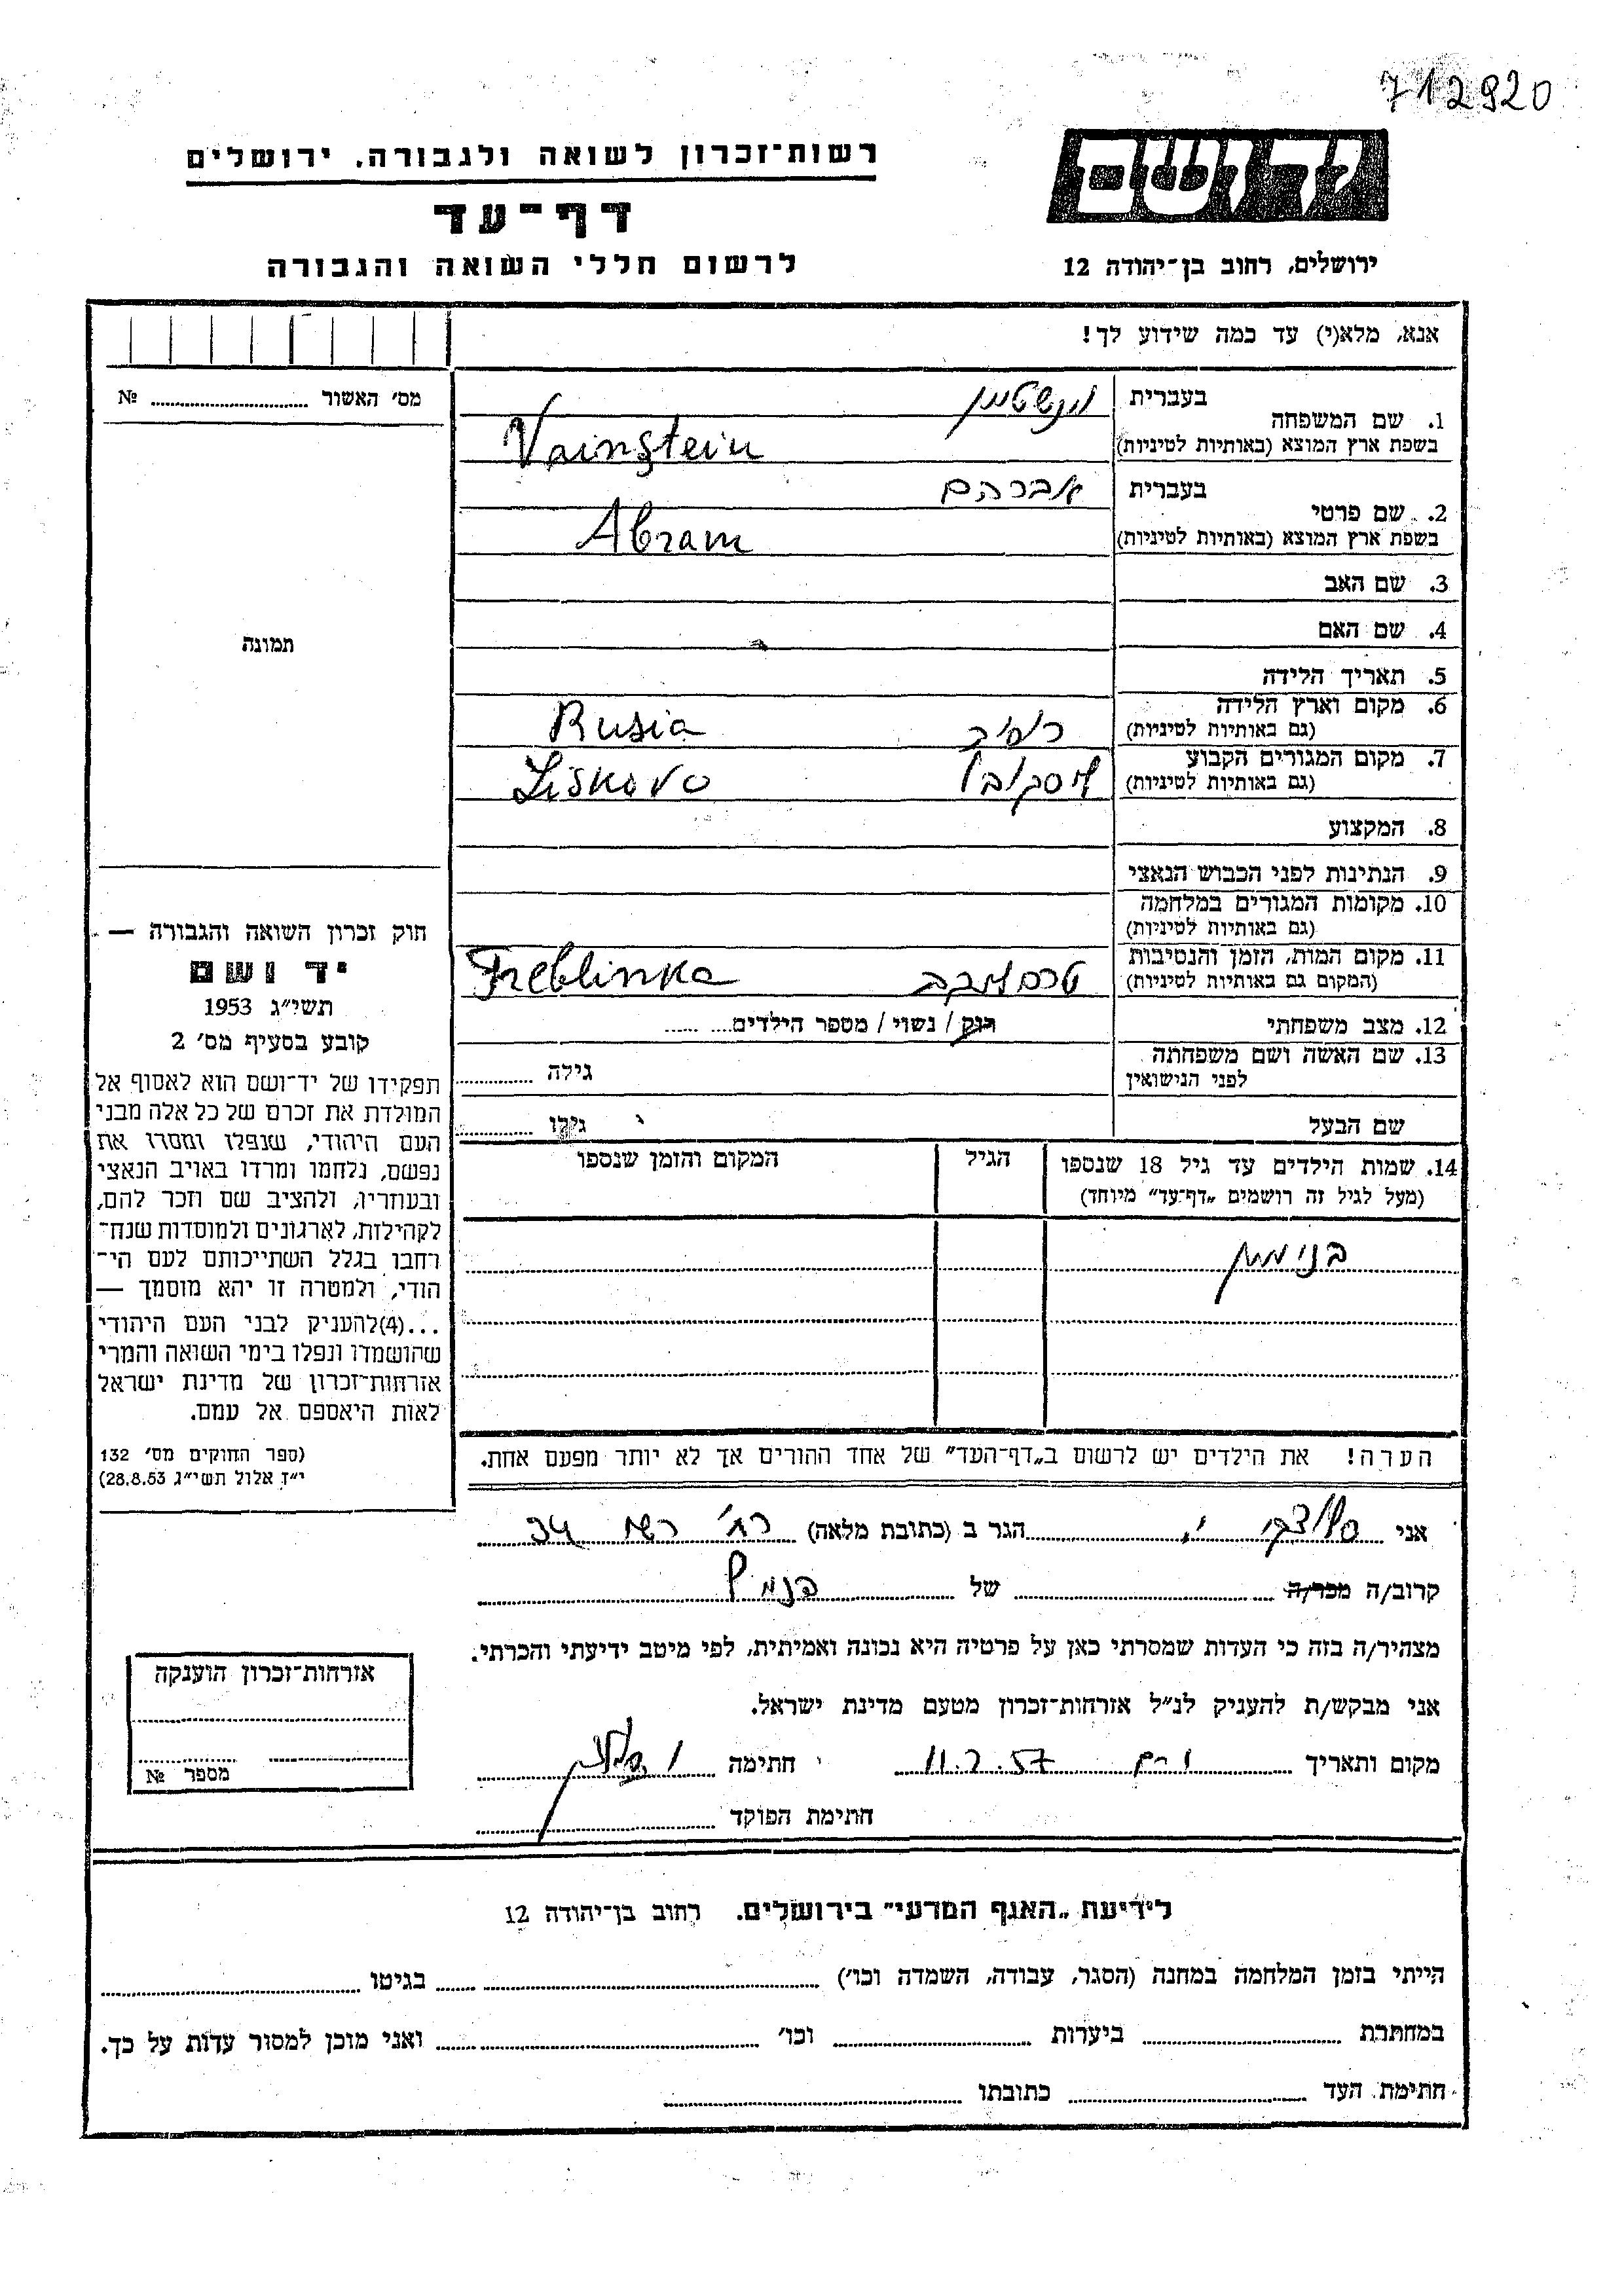 712920
יד ושם
רשות־זכרון לשואה ולגבורה, ירושלים
דף־עד
לרשום חללי השואה והגבורה
ירושלים, רחוב בן־יהודה 12
אנא, מלא(י) עד כמה שידוע לך!
מס׳ האשור ........ №
תמונה
חוק זכרון השואה והגבורה —
יד ושם
תשי״ג 1953
קובע בסעיף מס׳ 2
תפקידו של יד־ושם הוא לאסוף אל
המולדת את זכרם של כל אלה מבני
העם היהודי, שנפלו ומסרו את
נפשם, נלחמו ומרדו באויב הנאצי
ובעוזריו, ולהציב שם וזכר להם,
לקהילות, לארגונים ולמוסדות שנח־
רחבו בגלל השתייכותם לעם הי־
הודי, ולמטרה זו יהא מוסמך —
...(4)להעניק לבני העם היהודי
שהושמדו ונפלו בימי השואה והמרי
אזרחות־זכרון של מדינת ישראל
לאות היאספם אל עמם.
(ספר החוקים מס׳ 132
י״ז אלול תשי״ג 28.8.53)
1. שם המשפחה
בעברית
בשפת ארץ המוצא (באותיות לטיניות) Vainstein
2. שם פרטי
בעברית אברהם
בשפת ארץ המוצא (באותיות לטיניות) Abram
3. שם האב
4. שם האם
5. תאריך הלידה
6. מקום וארץ הלידה
(גם באותיות לטיניות) רוסיה Rusia
7. מקום המגורים הקבוע
(גם באותיות לטיניות) ליסקובו Liskovo
8. המקצוע
9. הנתינות לפני הכבוש הנאצי
10. מקומות המגורים במלחמה
(גם באותיות לטיניות)
11. מקום המות, הזמן והנסיבות
(המקום גם באותיות לטיניות) טרבלינקה Treblinka
12. מצב משפחתי רוק / נשוי / מספר הילדים........
13. שם האשה ושם משפחתה
לפני הנישואין גילה ........
שם הבעל גילו ........
14. שמות הילדים עד גיל 18 שנספו הגיל המקום והזמן שנספו
(מעל לגיל זה רושמים „דף־עד” מיוחד)
בנימין
הערה! את הילדים יש לרשום ב„דף־העד” של אחד ההורים אך לא יותר מפעם אחת.
אני ........ הגר ב (כתובת מלאה) רח׳ 34
קרוב/ה מכר/ה ........ של ........
מצהיר/ה בזה כי העדות שמסרתי כאן על פרטיה היא נכונה ואמיתית, לפי מיטב ידיעתי והכרתי.
אני מבקש/ת להעניק לנ״ל אזרחות־זכרון מטעם מדינת ישראל.
מקום ותאריך ........ 11.2.57 חתימה ........
חתימת הפוקד ........
אזרחות־זכרון הוענקה
מספר №
לידיעת „האגף המדעי” בירושלים. רחוב בן־יהודה 12
הייתי בזמן המלחמה במחנה (הסגר, עבודה, השמדה וכו׳) ........ בגיטו ........
במחתרת ........ ביערות ........ וכו׳ ........ ואני מוכן למסור עדות על כך.
חתימת העד ........ כתובתו ........